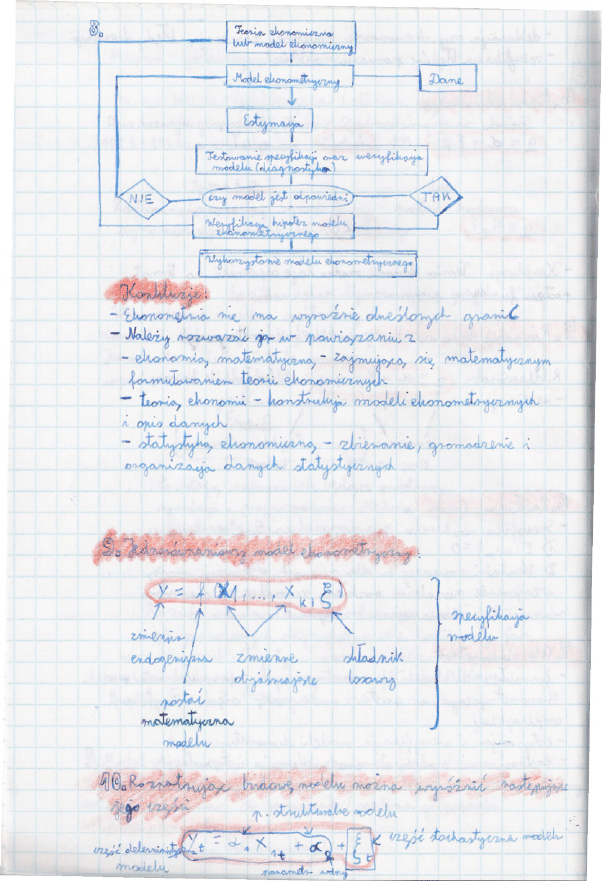 8.
Teoria ekonomiczna
lub model ekonomiczny
Model ekonometryczny
Dane
Estymacja
Testowanie specyfikacji oraz weryfikacja
modelu (diagnostyka)
NIE
czy model jest odpowiedni
TAK
Weryfikacja hipotez modelu
ekonometrycznego
Wykorzystanie modelu ekonometrycznego
Konkluzje:
- Ekonometria nie ma wyraźnie określonych granic
- Należy rozważać ją w powiązaniu z
- ekonomią matematyczną - zajmującą się matematycznym
formułowaniem teorii ekonomicznych
- teorią ekonomii - konstrukcja modeli ekonometrycznych
i opis danych
- statystyką ekonomiczną - zbieranie, gromadzenie i
organizacja danych statystycznych
9. Jednorównaniowy model ekonometryczny.
y = f (X1,..., Xk, ξ)
zmienna
endogeniczna
zmienne
objaśniające
składnik
losowy
specyfikacja
modelu
postać
matematyczna
modelu
10. Rozpatrując budowę modelu można wyróżnić następujące
jego części
p. strukturalne modelu
część deterministyczna
modelu
Yt = α1 X1t + α2 + ξt
część stochastyczna modelu
parametr wolny